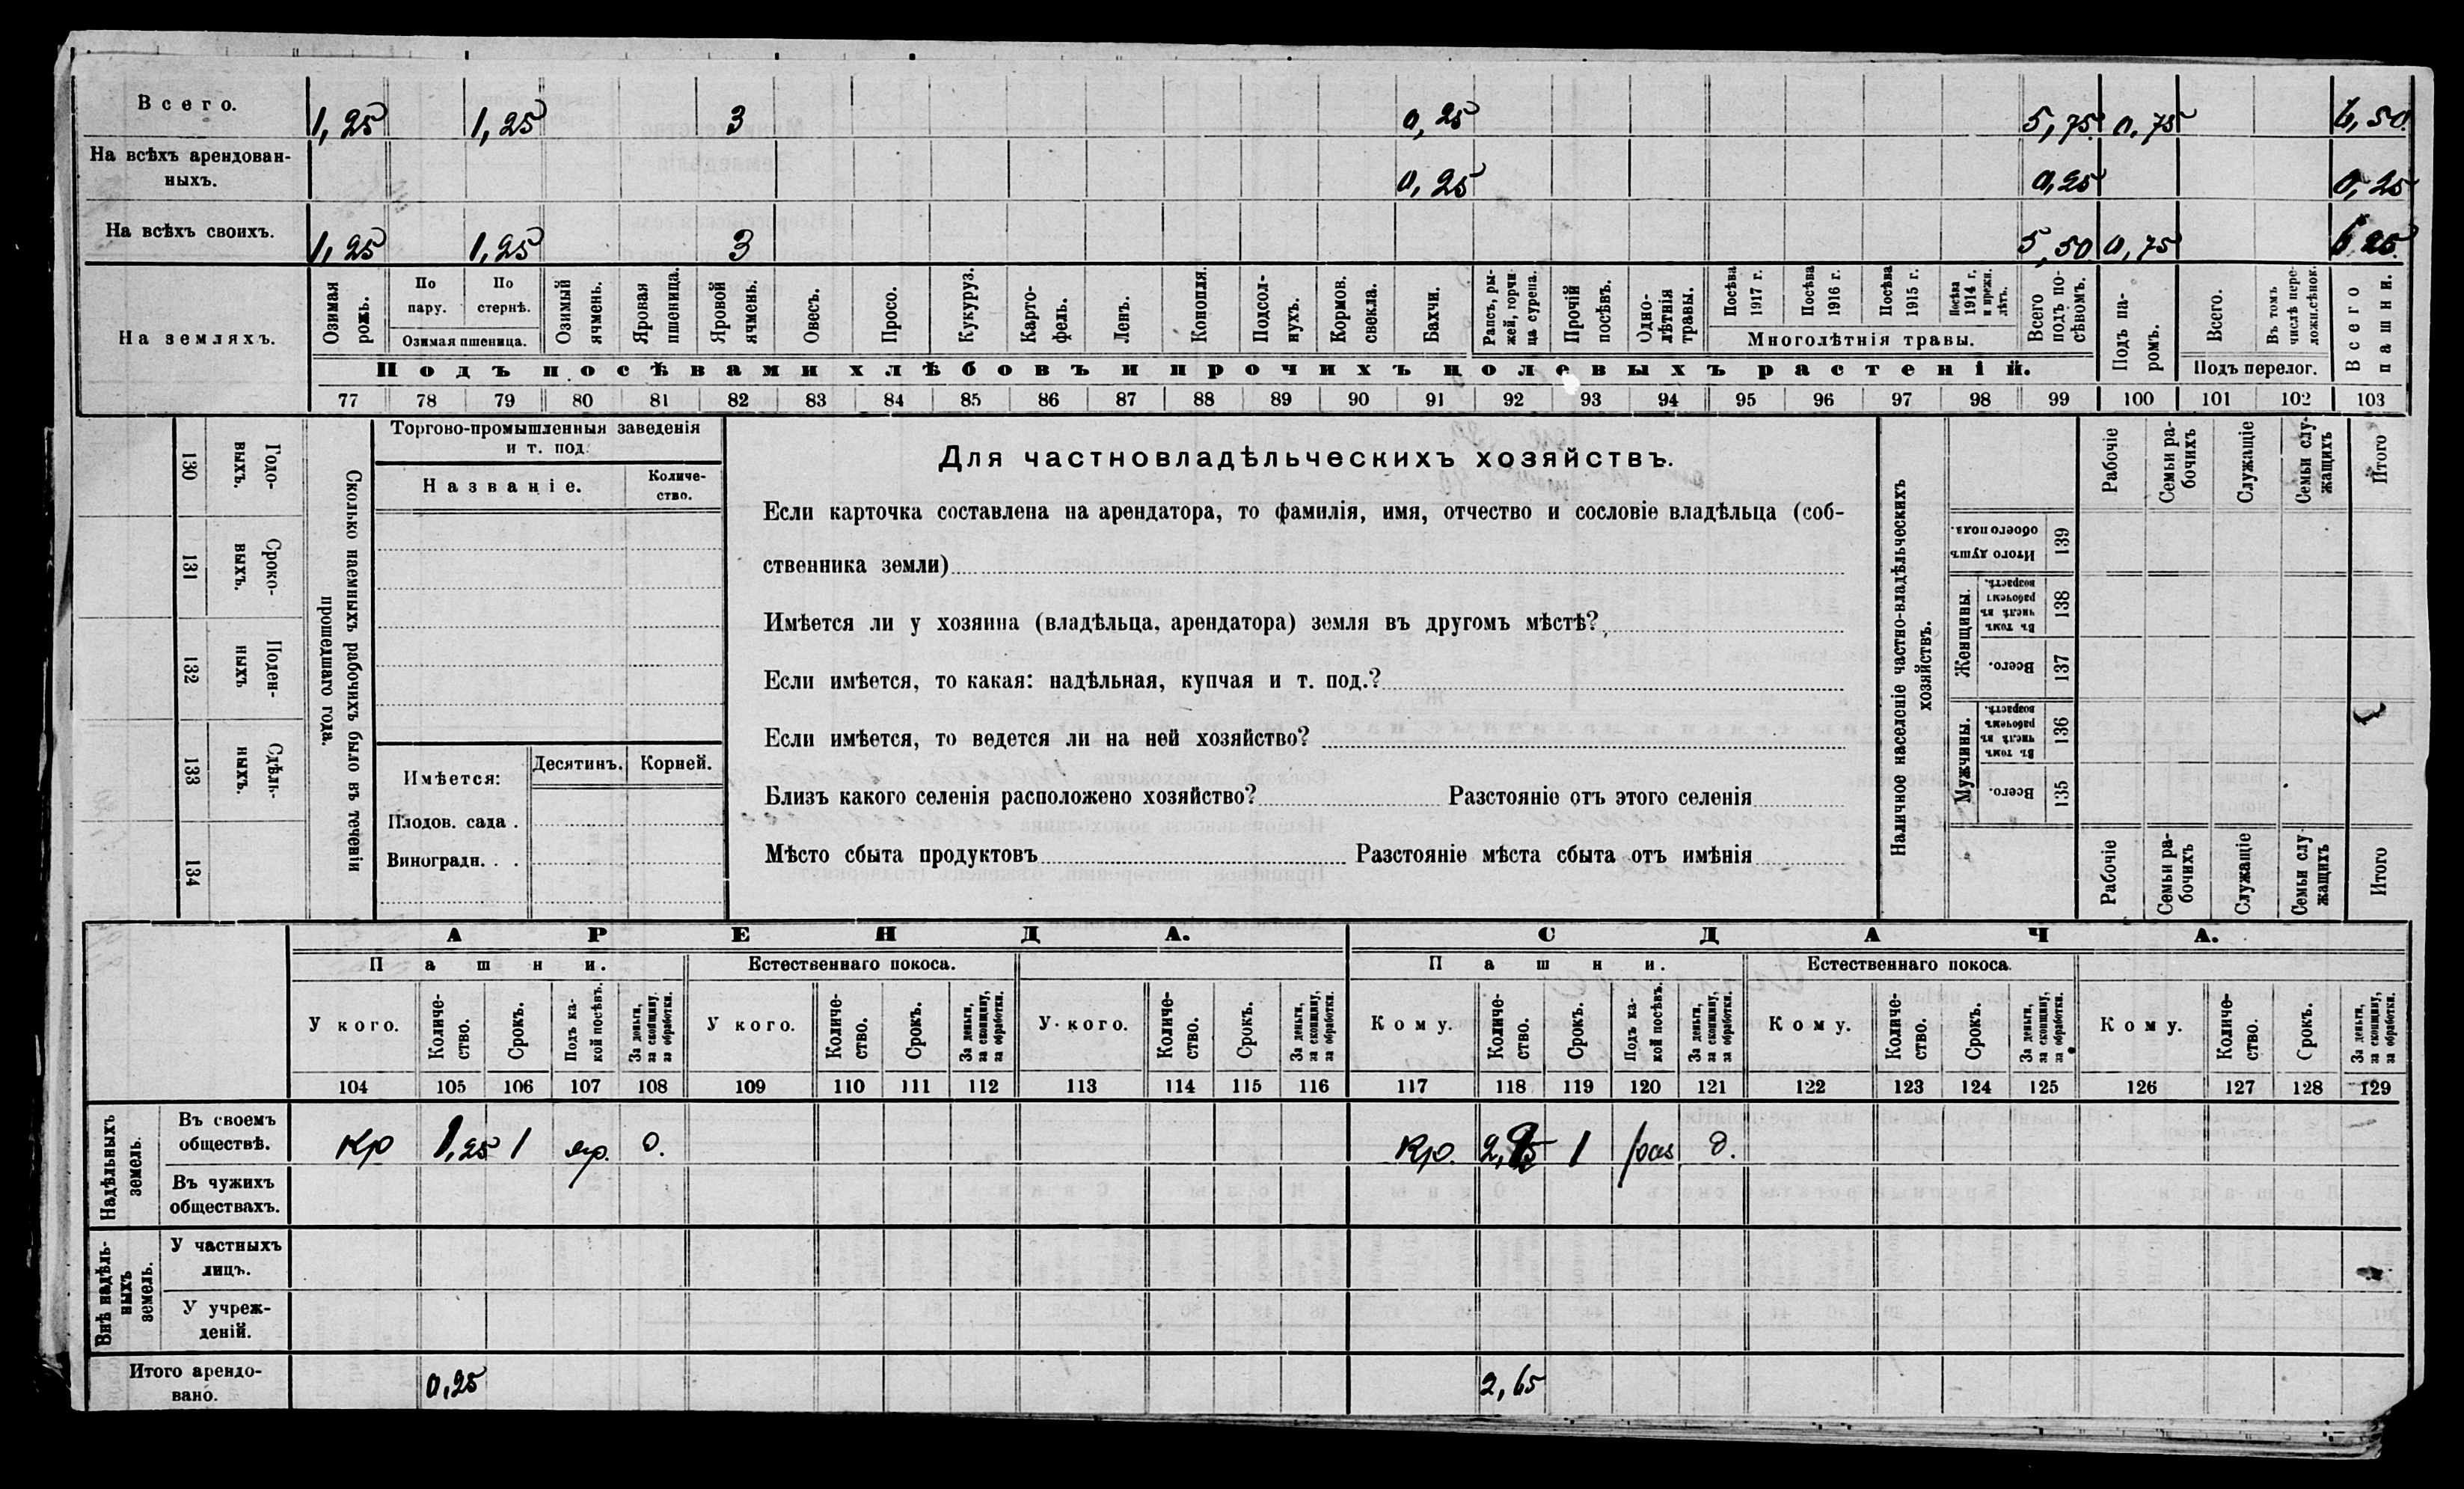 Всего. 1,25 1,25 3 0,25 5,75 0,75 6,50
На всѣхъ арендован-
ныхъ. 0,25 0,25 0,25
На всѣхъ своихъ. 1,25 1,25 3 5,50 0,75 6 25
На земляхъ.
Озимая рожь.
По пару.
По стернѣ.
Озимая пшеница.
Озимый ячмень.
Яровая пшеница.
Яровой ячмень.
Овесъ.
Просо.
Кукуруз.
Карто-
фель.
Ленъ.
Конопля.
Подсол-
нухъ.
Кормов. свекла.
Бахчи.
Рапсъ, ры-
жей, горчи
ца сурепа.
Прочій посѣвъ.
Одно-
лѣтнія
травы.
Посѣва 1917 г.
Посѣва 1916 г.
Посѣва 1915 г.
Посѣва 1914 г. и прежн. лѣтъ.
Многолѣтнія травы.
Всего подъ по-
сѣвомъ.
Подъ па-
ромъ.
Всего.
Въ томъ числѣ пере-
ложн.сѣнок.
Подъ перелог.
Всего пашни.
Подъ посѣвами хлѣбовъ и прочихъ полевыхъ растеній.
77 78 79 80 81 82 83 84 85 86 87 88 89 90 91 92 93 94 95 96 97 98 99 100 101 102 103
130 Годо-
выхъ.
131 Сроко-
выхъ.
132 Поден-
ныхъ
133 Сдѣль-
ныхъ.
134
Сколько наемныхъ рабочихъ было въ теченіи
прошедшаго года.
Торгово-промышленныя заведенія
и т. под.
Названіе.
Количе-
ство.
Имѣется:
Десятинъ. Корней.
Плодов. сада .
Виноградн. . .
Для частновладѣльческихъ хозяйствъ.
Если карточка составлена на арендатора, то фамилія, имя, отчество и сословіе владѣльца (соб-
ственника земли)
Имѣется ли у хозяина (владѣльца, арендатора) земля въ другомъ мѣстѣ?
Если имѣется, то какая: надѣльная, купчая и т. под.?
Если имѣется, то ведется ли на ней хозяйство?
Близъ какого селенія расположено хозяйство? Разстояніе отъ этого селенія
Мѣсто сбыта продуктовъ Разстояніе мѣста сбыта отъ имѣнія
Наличное населеніе частно-владѣльческихъ
хозяйствъ.
Рабочіе
Семьи ра-
бочихъ
Служащіе
Семьи слу-
жащихъ
Итого
Итого душъ
обоего пола.
139
Женщины.
Въ томъ
числѣ въ
рабочемъ
возрастѣ.
138
Всего.
137
Мужчины.
Въ томъ
числѣ въ
рабочемъ
возрастѣ.
136
Всего.
135
Рабочіе
Семьи ра-
бочихъ
Служащіе
Семьи слу
жащихъ
Итого
АРЕНДА. СДАЧА.
Пашни. Естественнаго покоса. Пашни. Естественнаго покоса.
У кого.
Количе-
ство.
Срокъ.
Подъ ка-
кой посѣвъ.
За деньги,
за скопщину,
за обработки.
У кого.
Количе-
ство.
Срокъ.
За деньги,
за скопщину,
за обработки.
У кого.
Количе-
ство.
Срокъ.
За деньги,
за скопщину,
за обработки.
Кому.
Количе-
ство.
Срокъ.
Подъ ка-
кой посѣвъ.
За деньги,
за скопщину,
за обработки.
Кому.
Количе-
ство.
Срокъ.
За деньги,
за скопщину,
за обработки.
Кому.
Количе-
ство.
Срокъ.
За деньги,
за скопщину,
за обработки.
104 105 106 107 108 109 110 111 112 113 114 115 116 117 118 119 120 121 122 123 124 125 126 127 128 129
Надѣльныхъ
земель.
Въ своемъ
обществѣ. Кр 1,25 1 яр. д. Кр. 1 д.
Въ чужихъ
обществахъ.
Внѣ надѣль-
ныхъ
земель.
У частныхъ
лицъ.
У учреж-
деній.
Итого арендо-
вано. 0,25 2,65